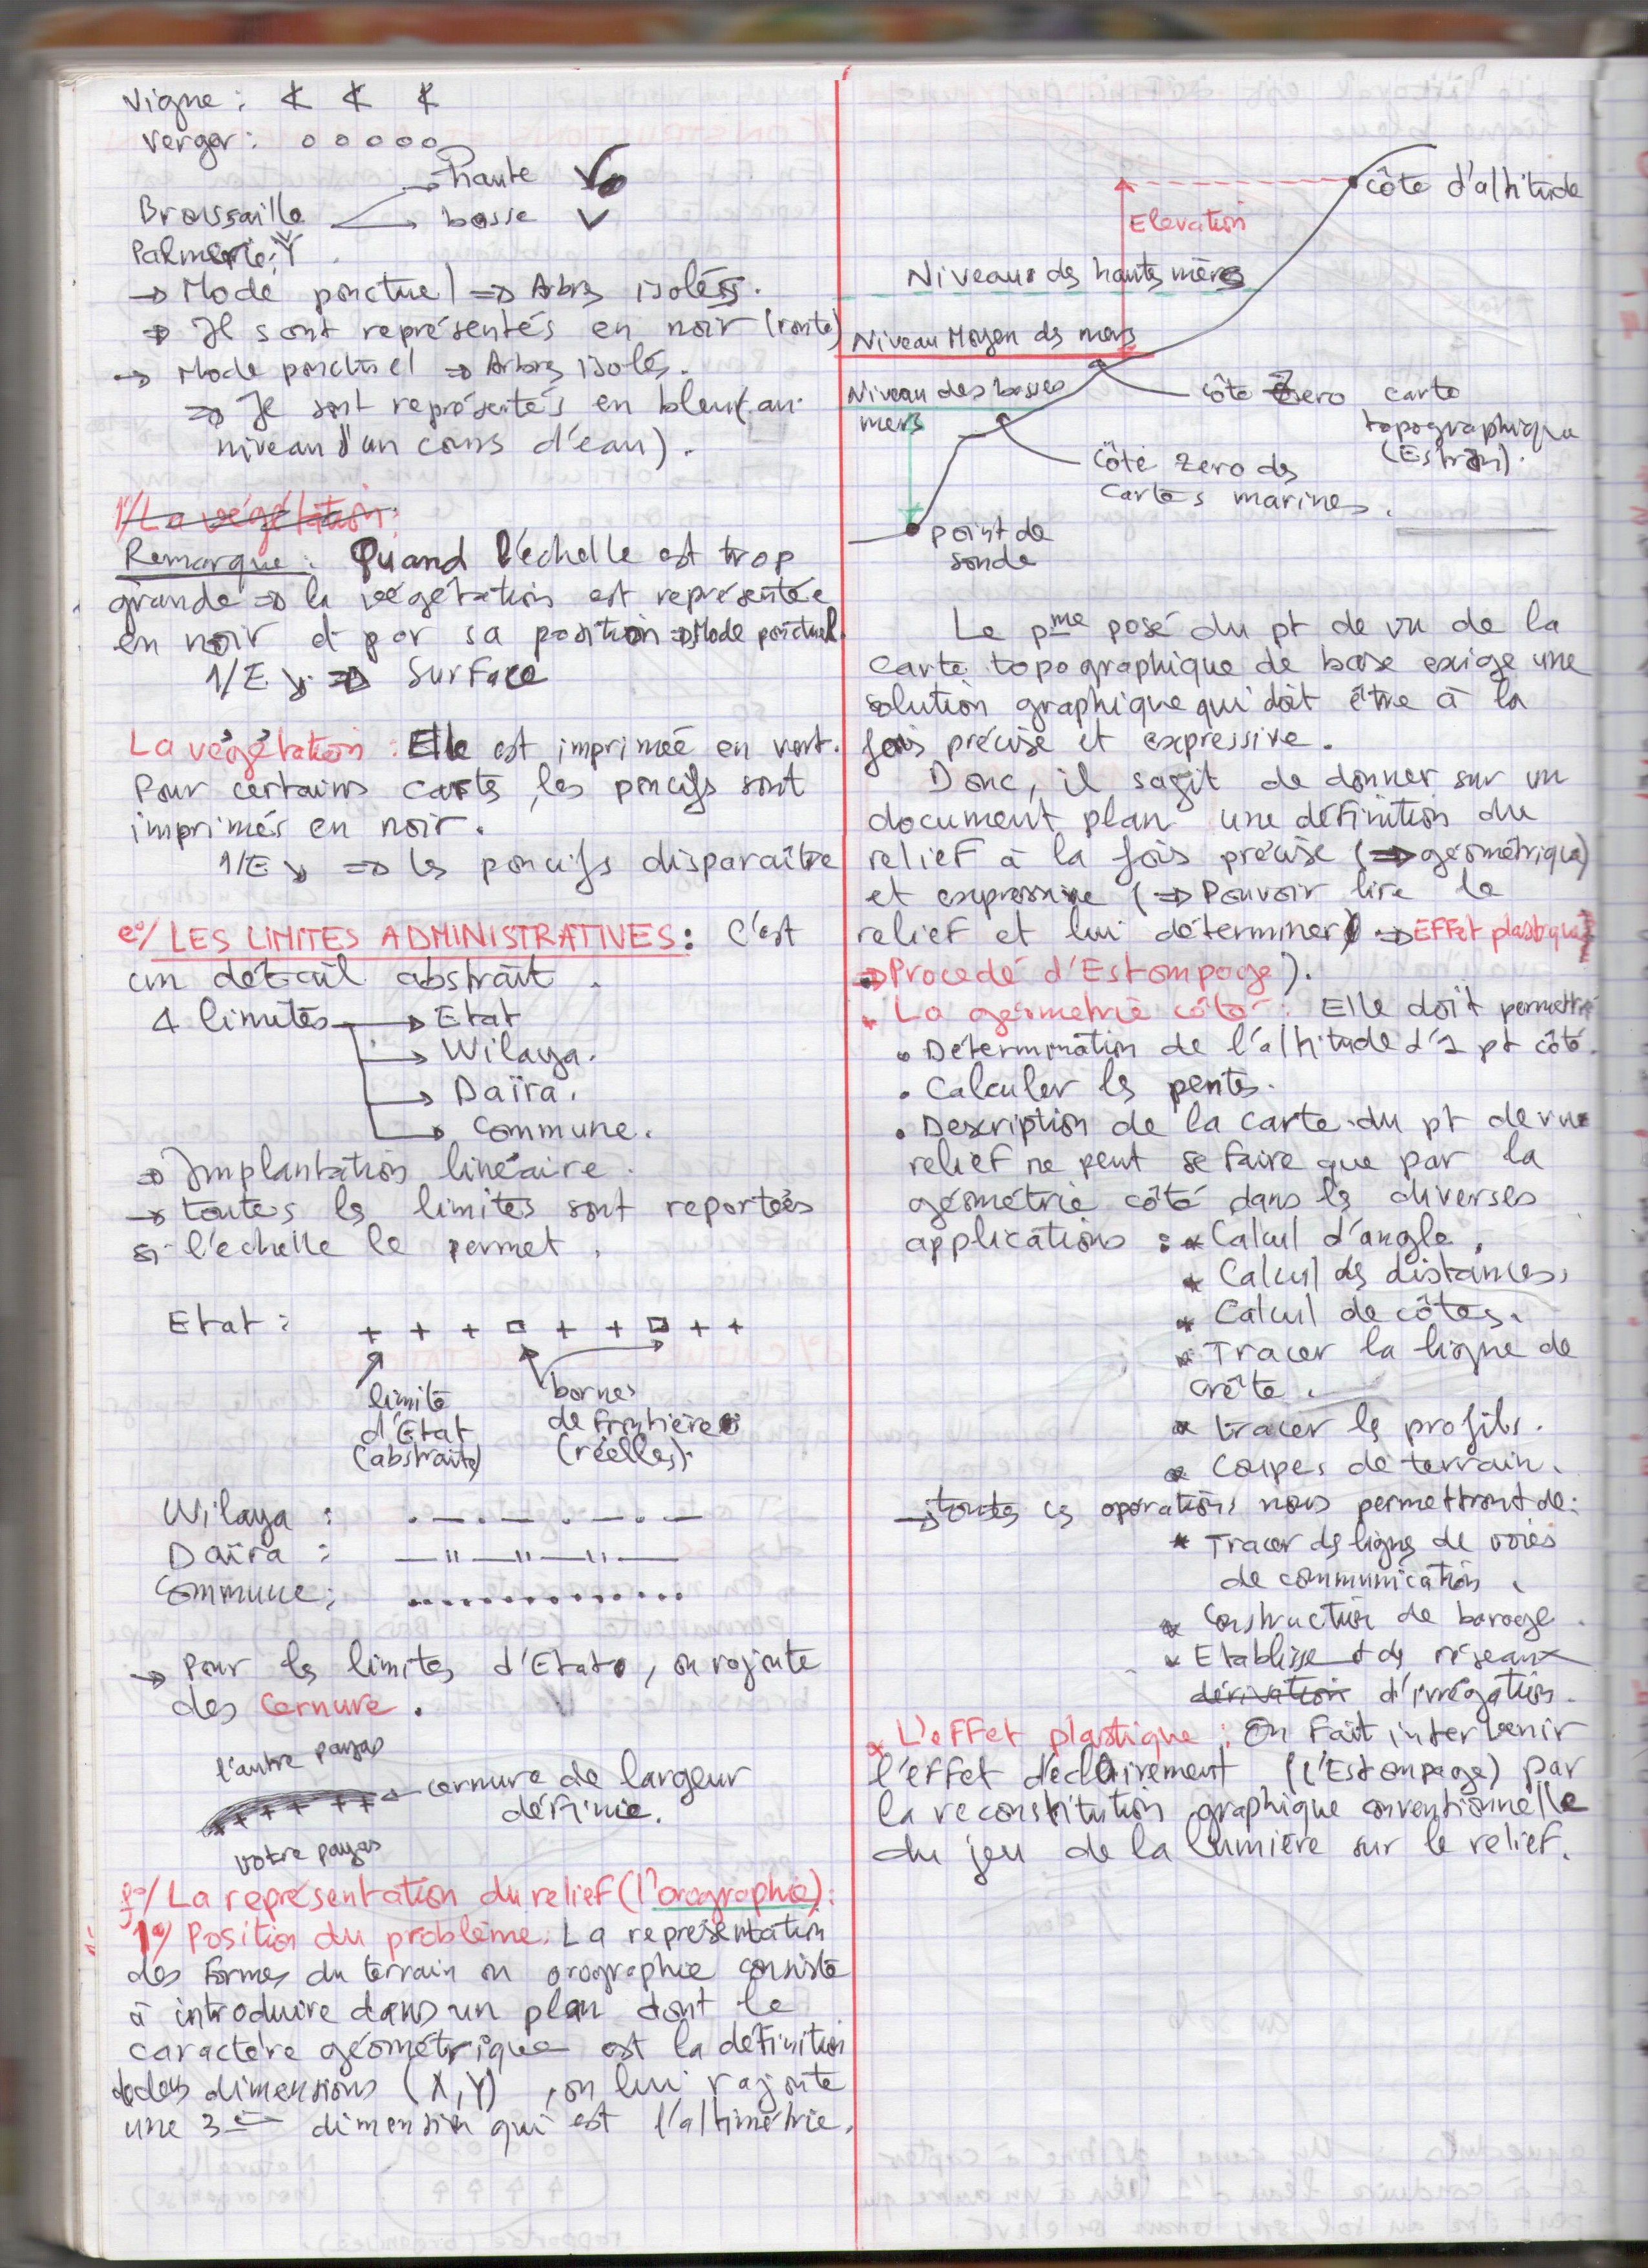 Vigne :
Verger : o o o o o
haute
Broussaille
basse
Palmerie :
→ Mode ponctuel ⇒ Arbres isolés.
⇒ Il sont représentés en noir (route)
→ Mode ponctuel ⇒ Arbres isolés.
⇒ Il sont représentés en bleu (au
niveau d'un cours d'eau).
1°/ La végétation :
Remarque : Quand l'échelle est trop
grande ⇒ la végétation est représentée
en noir et par sa position ⇒ Mode ponctuel.
1/E ↘ ⇒ Surface
La végétation : Elle est imprimée en vert.
Pour certains cartes, les poncifs sont
imprimés en noir.
1/E ↘ ⇒ les poncifs disparaître
e°/ LES LIMITES ADMINISTRATIVES : C'est
un détail abstrait.
4 limites → Etat
→ Wilaya.
→ Daïra.
→ Commune.
⇒ Implantation linéaire.
→ toutes les limites sont reportées
si l'échelle le permet.
Etat : + + + □ + + □ + +
limite
d'Etat
(abstraite)
bornes
de frontières
(réelles).
Wilaya : . — . — . — . —
Daïra : — || — || — || —
Commune : ..............
→ Pour les limites d'Etat, on rajoute
des Cernure.
l'autre payas
← cernure de largeur
définie.
+ + + + +
votre payas
f°/ La représentation du relief (l'orographie) :
1°) Position du problème : La représentation
des formes du terrain ou orographie consiste
à introduire dans un plan dont le
caractère géométrique est la définition
de deux dimensions (X, Y), on lui rajoute
une 3 dimension qui est l'altimétrie.
côte d'altitude
Elevation
Niveaux des hautes mers
Niveau Moyen des mers
Niveau des basses
mers
côte Zero carte
topographique
(Estran).
Côte Zero des
cartes marines.
point de
sonde
Le pme posé du pt de vu de la
carte topographique de base exige une
solution graphique qui doit être à la
fois précise et expressive.
Donc, il sagit de donner sur un
document plan une définition du
relief à la fois précise (⇒ géométrique)
et expressive (⇒ Pouvoir lire le
relief et lui déterminer) ⇒ Effet plastique
⇒ Procedé d'Estompage).
* La géometrie côté : Elle doit permettre
• Détermination de l'altitude d'1 pt côté.
• Calculer les pentes.
• Description de la carte du pt de vue
relief ne peut se faire que par la
géométrie côté dans les diverses
applications : * Calcul d'angle.
* Calcul des distances.
* Calcul de côtes.
* Tracer la ligne de
crête.
* tracer les profils.
* Coupes de terrain.
→ toutes ces opérations nous permettront de :
* Tracer des lignes de voies
de communication.
* Construction de barage.
* Etablisse t des réseaux
dérivation d'irrégation.
* L'effet plastique : On fait intervenir
l'effet d'éclairement (l'Estompage) par
la reconstitution graphique conventionnelle
du jeu de la lumière sur le relief.